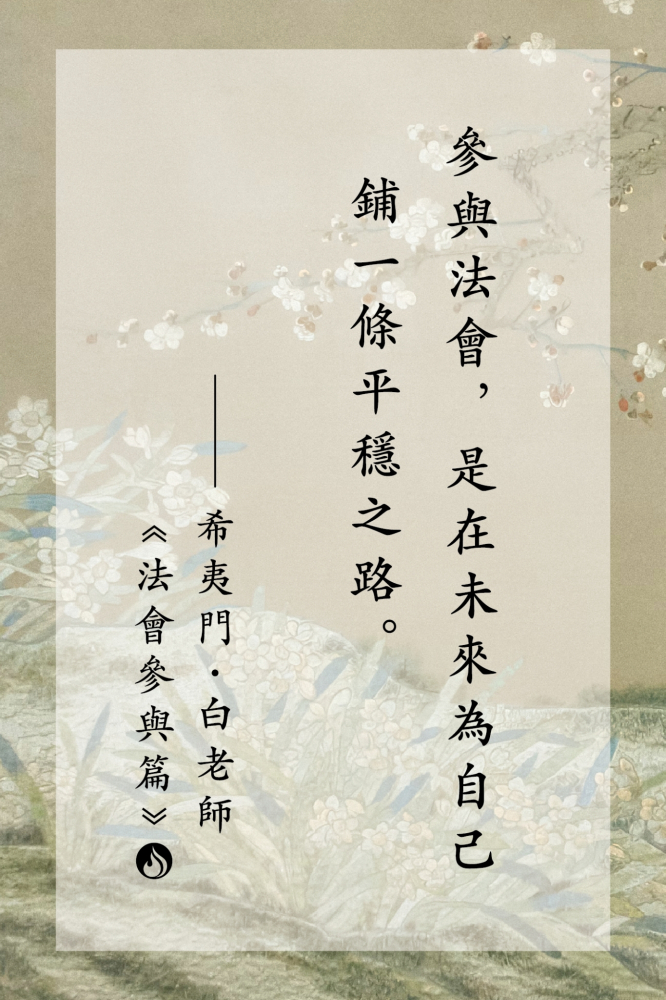 參與法會，是在未來為自己
鋪一條平穩之路。
——希夷門·白老師
《法會參與篇》